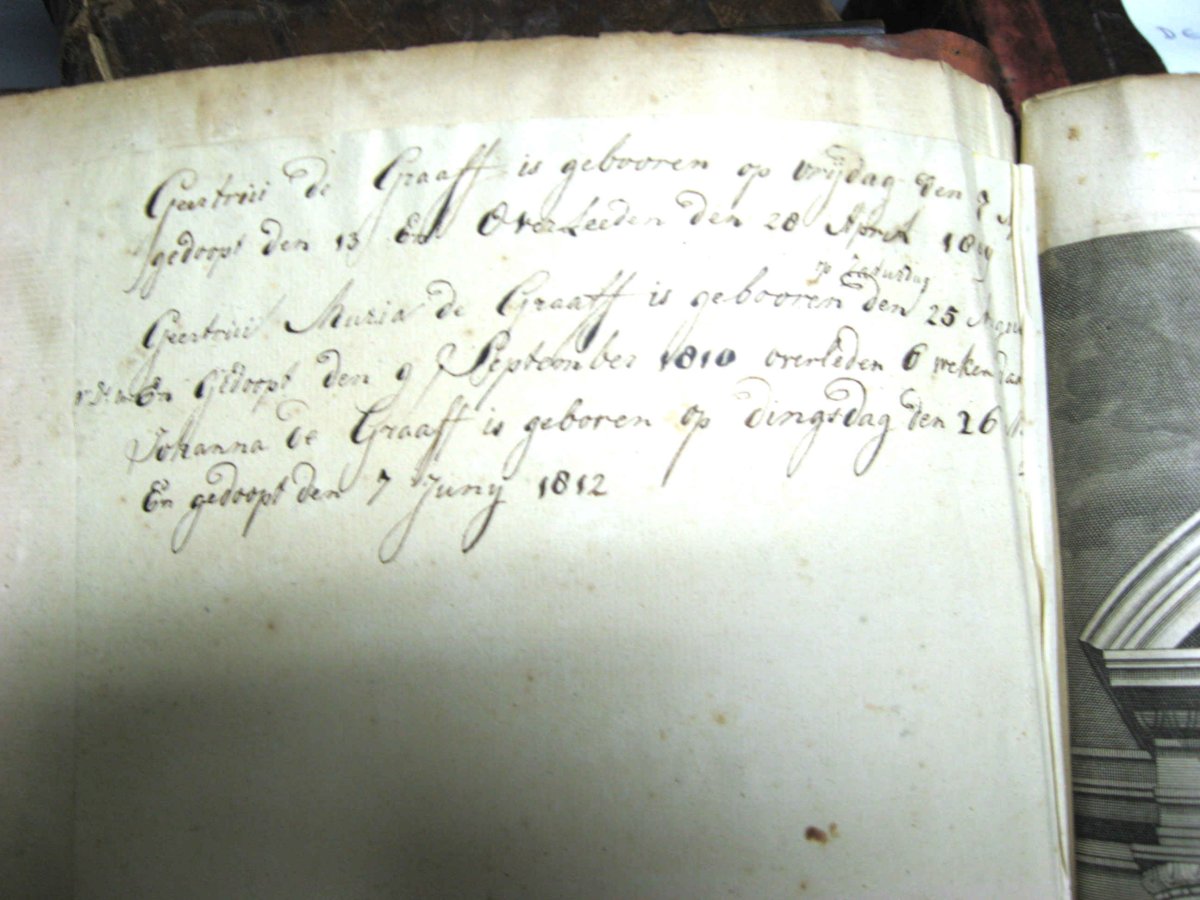 Geertrui de Graaff is gebooren op vrijdag den 7
gedoopt den 13 En Overleeden den 28 April
op Zaturdag
Geertrui Maria de Graaff is gebooren den 25
En Gedoopt den 9 September 1810 overleden 6 weken
Johanna de Graaff is geboren op dingsdag den 26
En gedoopt den 7 Juny 1812